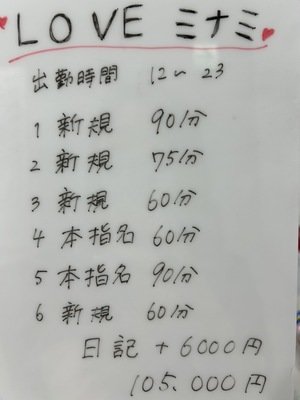 LOVE ミナミ
出勤時間 12〜23
1 新規 90分
2 新規 75分
3 新規 60分
4 本指名 60分
5 本指名 90分
6 新規 60分
日記 + 6000円
105.000円